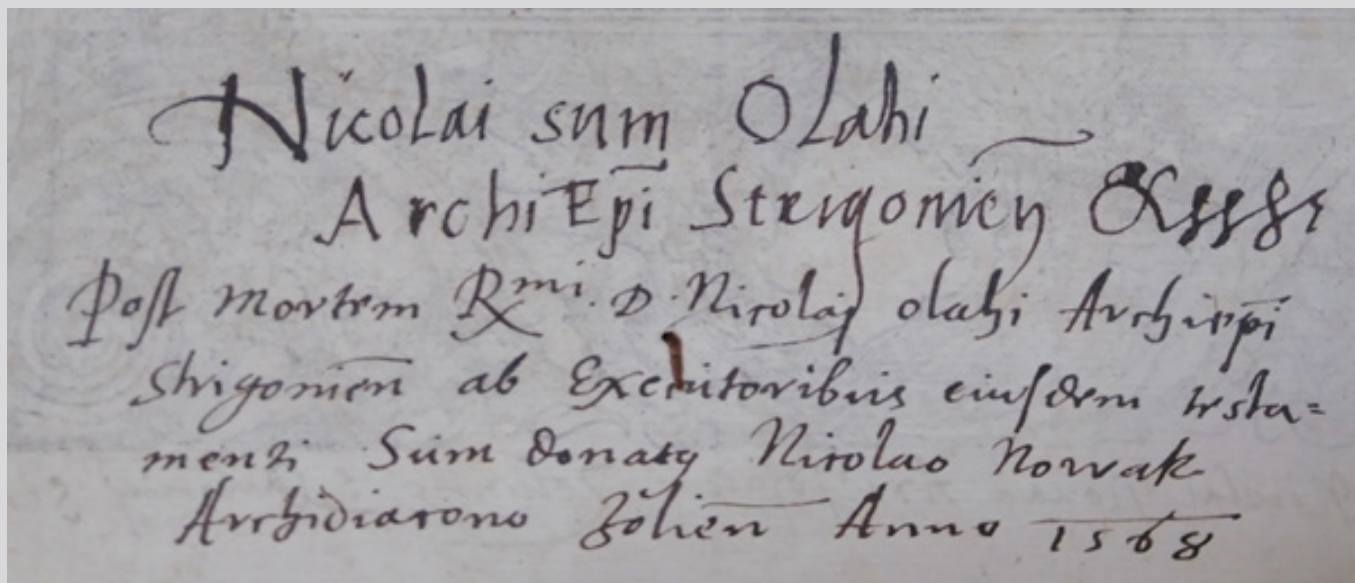 Nicolai sum Olahi
ArchiEp̅i Strigonien̅
Post mortem Rmi. D. Nicolaj olahi Archiep̅i
Strigonien̅ ab Executoribus eiusdem testa=
menti Sum donatꝯ Nicolao Nowak
Archidiacono Zolien̅ Anno 1568